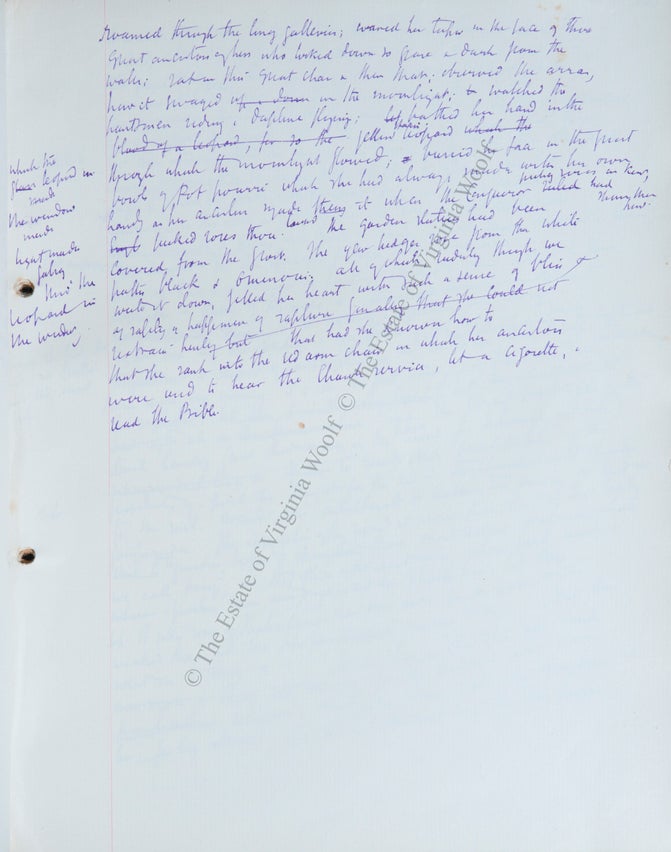 roamed through the long galleries; waved her taper in the face of those
great ancestors of hers who looked down so grave & dark from the
walls; sat in this great chair & then that; observed the arras,
how it swayed up & down in the moonlight; & watched the
huntsmen riding & Daphne flying; bathed her hand in the
blood of a leopard, for so the yellow leopard which the
through which the moonlight flowed; buried face in the great
bowl of pot pourri which she had always, made with his own
hands as her ancestor made it when the Emperor
picked roses there. the garden statues had been
covered, from the frost. The yew hedges from the white
paths black & ominous. all of which
went it down, filled her heart with such a sense of bliss
of safety, & happiness of rapture finally that she could not
restrain that had she known how to
that she sank into the red arm chair in which her ancestors
were used to hear the Chapel service, lit a cigarette, &
read the Bible.
which the
leopard in
the window
made
light made
falling
this the
leopard in
the window
© The Estate of Virginia Woolf © The Estate of Virginia Woolf